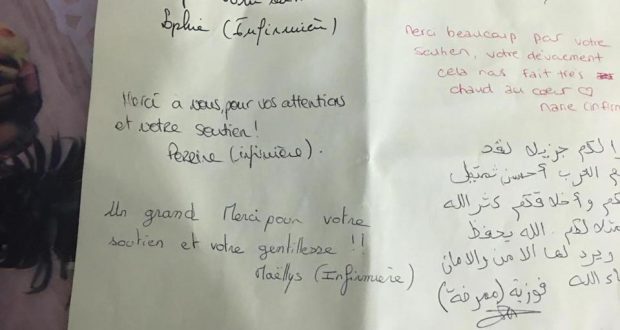 Sophie (Infirmière)
Merci à vous, pour vos attentions
et votre soutien!
Pereire (infirmière).
Un grand Merci pour votre
soutien et votre gentillesse !!
Maëllys (Infirmiere)
Merci beaucoup par votre
soutien, votre dévouement
cela nas fait très
chaud au cœur ♡
Marie (infirm
لكم جزيلا لقد
العرب أحسن تمثيل
وأخلاقكم كثر الله
أمثالكم. الله يحفظ
ويرد لها الأمن والأمان
الله فوزية (ممرضة)